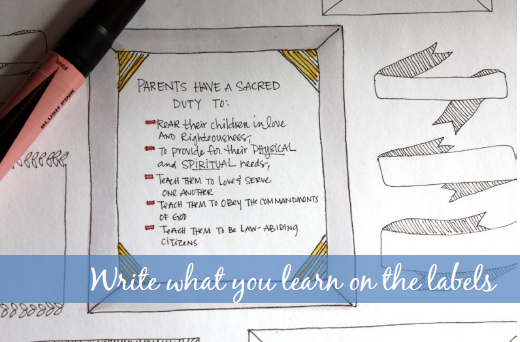 FINE
BLUSH PINK
PARENTS HAVE A SACRED
DUTY TO:
REAR their children in love
AND Righteousness,
To provide for their PHYSICAL
and SPIRITUAL needs,
TEACH THEM TO LOVE & SERVE
ONE ANOTHER
TEACH THEM TO OBEY THE COMMANDMENTS
OF GOD
TEACH THEM TO BE LAW-ABIDING
CITIZENS
Write what you learn on the labels